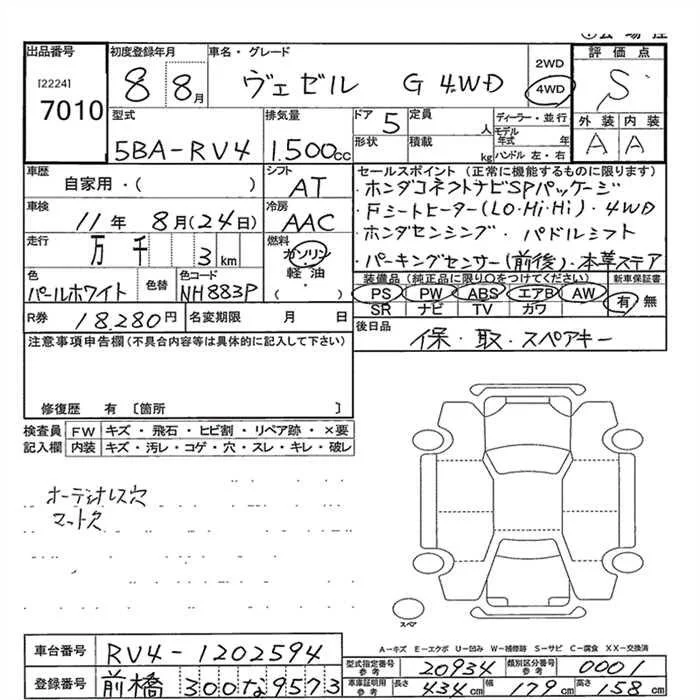 出品番号
[2224]
7010
初度登録年月
8 8月
車名・グレード
ヴェゼル G 4WD
2WD
4WD
評価点
S
外装 内装
A A
型式
5BA-RV4
排気量
1.500cc
ドア 5
形状
定員 人
積載 kg
ディーラー・並行
モデル年式 年
ハンドル 左・右
車歴
自家用・( )
シフト
AT
車検
11年 8月(24日)
冷房
AAC
走行
万 千 3 km
燃料
ガソリン
軽油
・( )
色
パールホワイト
色替
色コード
NH883P
R券 18.280円
名変期限 月 日
セールスポイント (正常に機能するものに限ります)
・ホンダコネクトナビSPパッケージ
・Fシートヒーター(LO・Hi・Hi)・4WD
・ホンダセンシング・パドルシフト
・パーキングセンサー(前後)・本革ステア
装備品 (純正品に限り○をつけてください)
新車保証書
PS PW ABS エアB AW
有 無
SR ナビ TV ガワ
後日品
保・取・スペアキー
注意事項申告欄(不具合内容等は具体的に記入して下さい)
修復歴 有 〔箇所 〕
検査員記入欄
FW キズ・飛石・ヒビ割・リペア跡・×要
内装 キズ・汚レ・コゲ・穴・スレ・キレ・破レ
オーディオレス穴
マット欠
スペア
A-キズ E-エクボ U-凹み W-補修跡 S-サビ C-腐食 XX-交換済
車台番号 RV4-1202594
登録番号 前橋 300な9573
型式指定番号 参考 20934
類別区分番号 参考 0001
車庫証明用 参考 長さ 434cm 幅 179cm 高さ 158cm